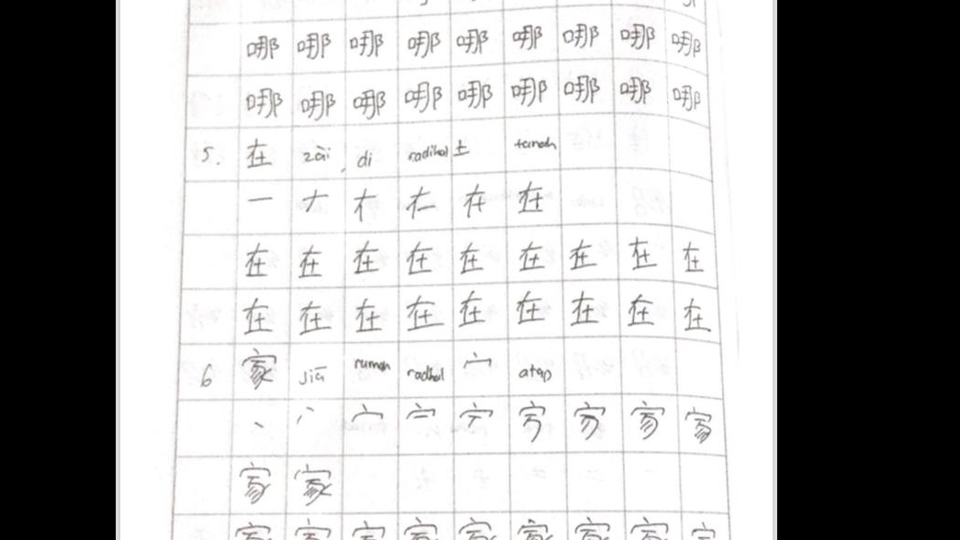 哪 哪 哪 哪 哪 哪 哪 哪 哪
哪 哪 哪 哪 哪 哪 哪 哪 哪
5. 在 zài, di radikal 土 tanah
一 ナ 在
在 在 在 在 在 在 在 在 在
在 在 在 在 在 在 在 在 在
6 家 jiā rumah radikal 宀 atap
丶 宀
家 家
家 家 家 家 家 家 家 家 家